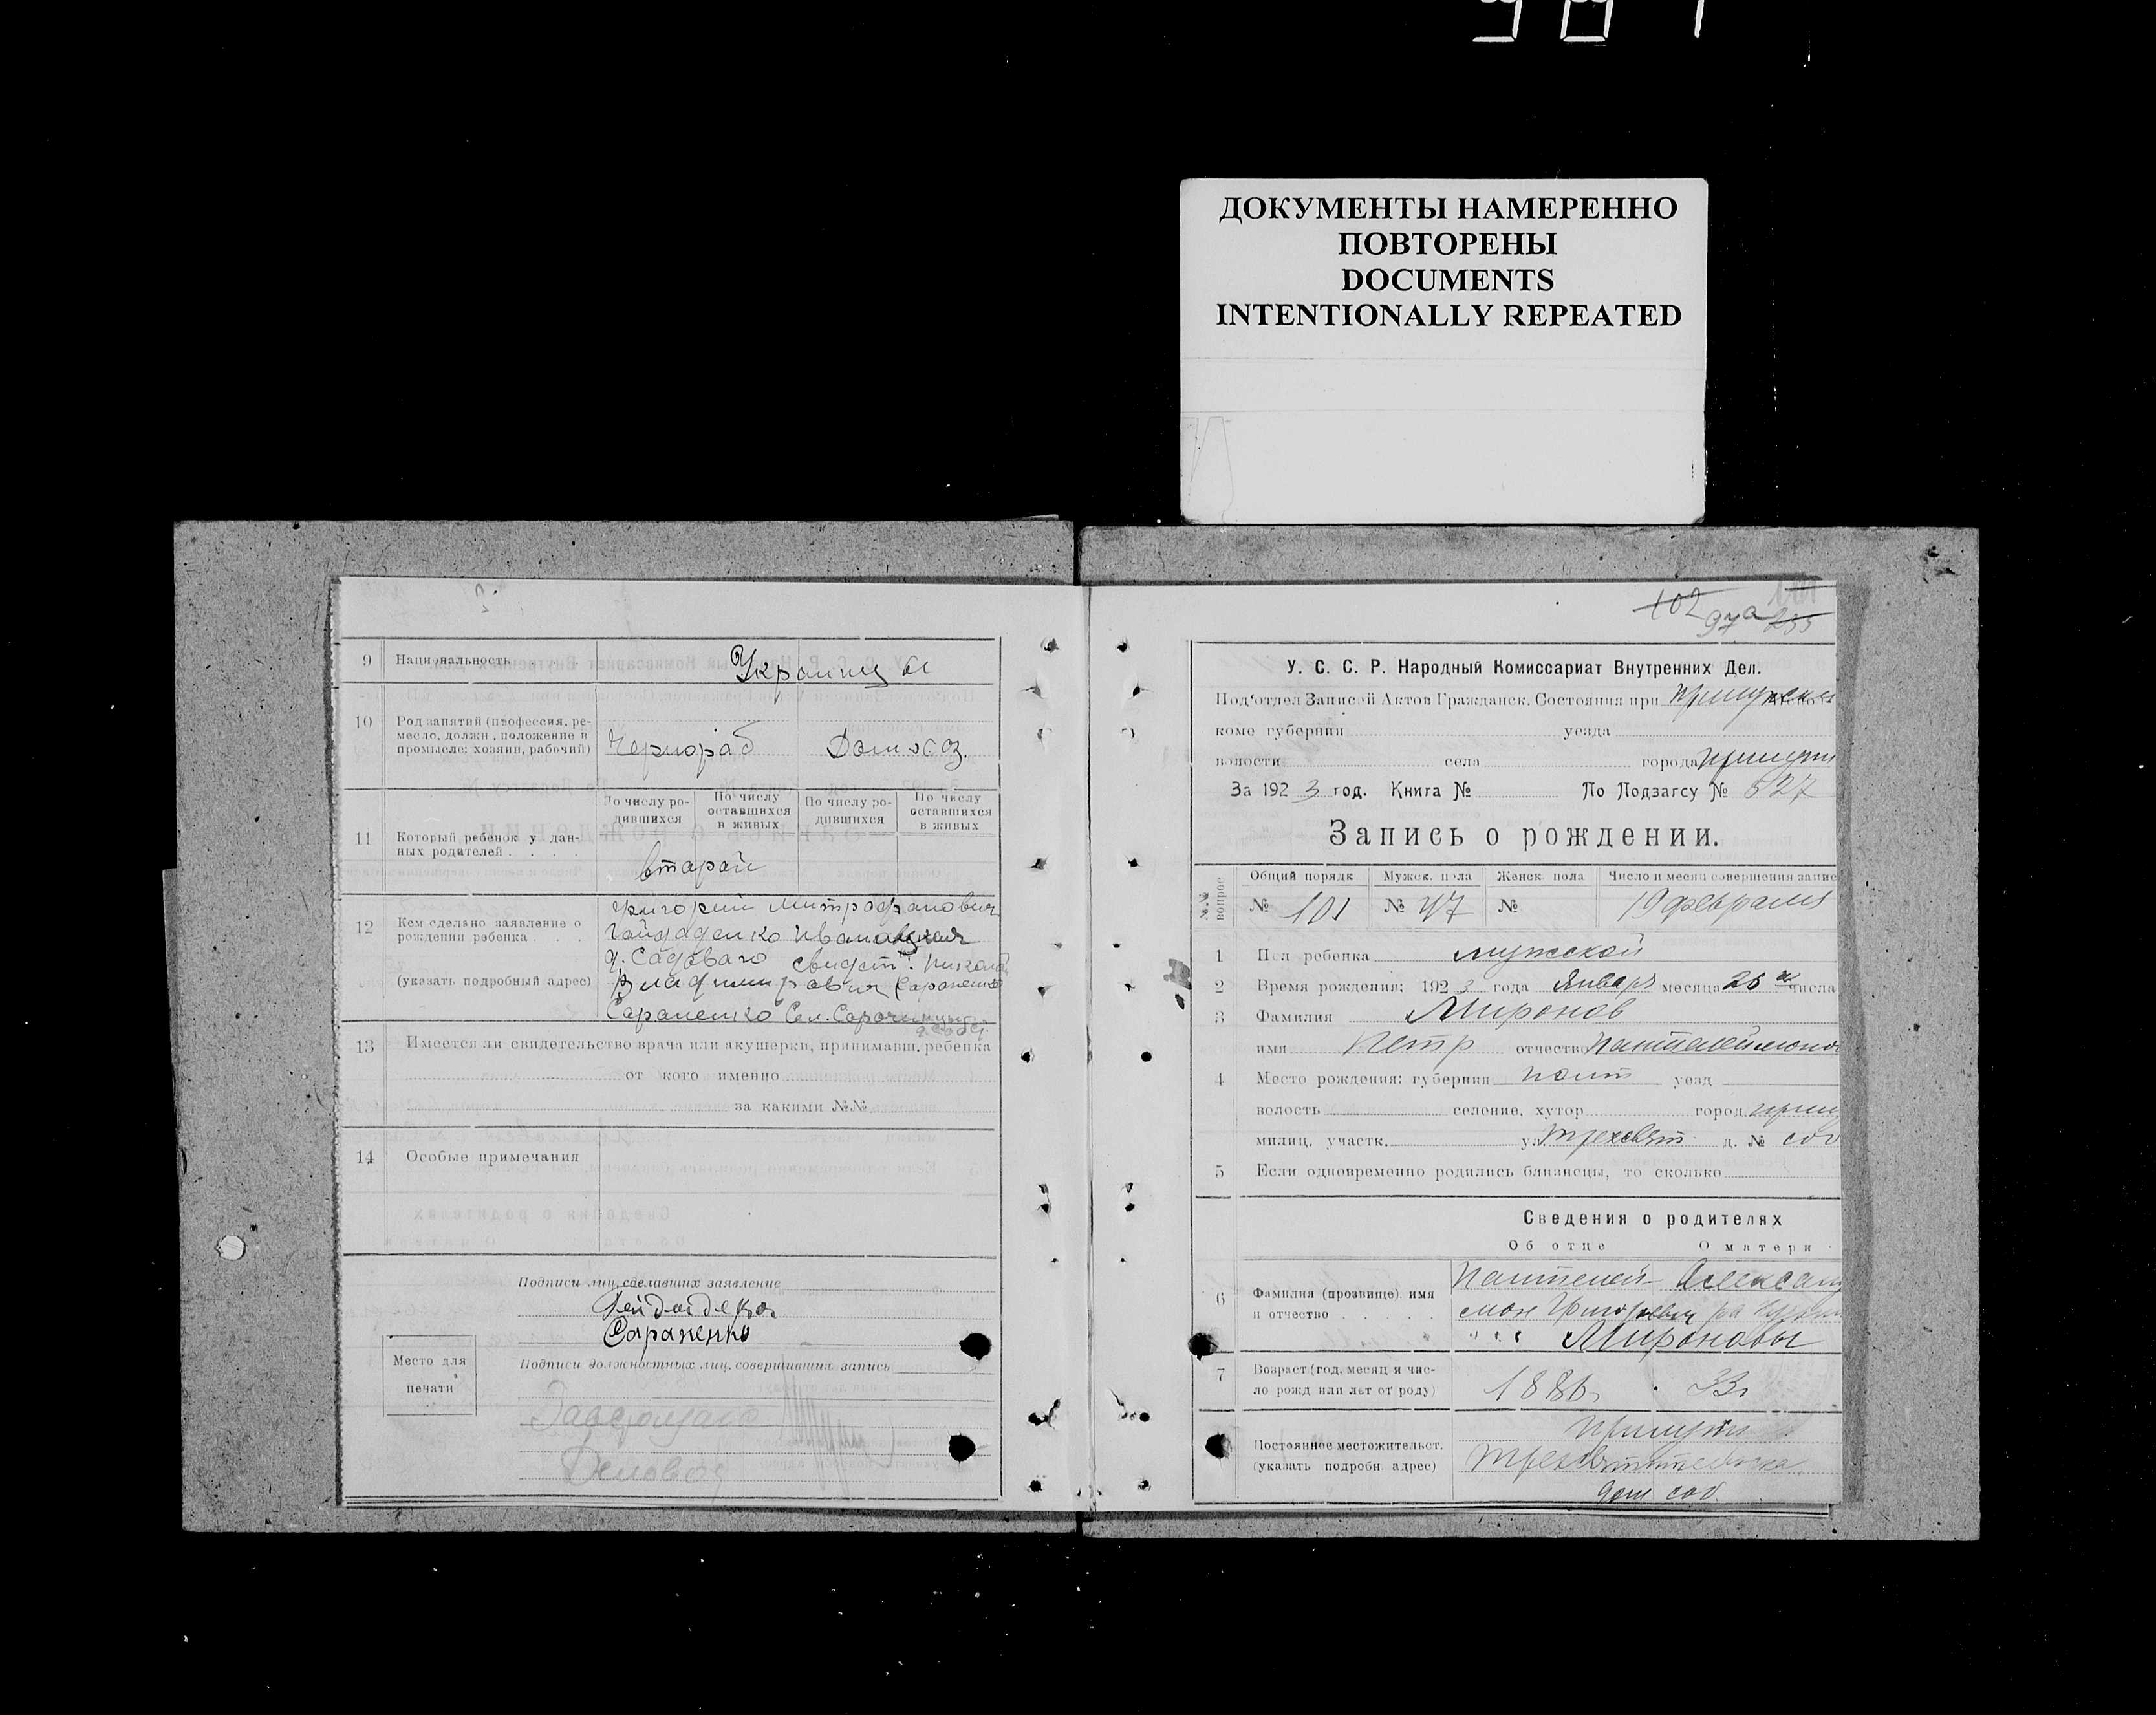 ДОКУМЕНТЫ НАМЕРЕННО
ПОВТОРЕНЫ
DOCUMENTS
INTENTIONALLY REPEATED
9 Национальность Украинцы
10 Род занятий (профессия, ре-
месло, должн., положение в
промысле: хозяин, рабочий) Чернораб Домхоз.
11 Который ребенок у дан-
ных родителей
По числу ро-
дившихся
По числу
оставшихся
в живых
По числу ро-
дившихся
По числу
оставшихся
в живых
второй
12 Кем сделано заявление о
рождении ребенка
(указать подробный адрес)
Григорий Митрофанович
Гайдаденко
д. Садоваго свидет:
Владимирович Сараненко
Сараненко Сел.
13 Имеется ли свидетельство врача или акушерки, принимавш. ребенка
от кого именно
за какими №№
14 Особые примечания
Подписи лиц, сделавших заявление
Сараненко
Подписи должностных лиц, совершивших запись
Место для
печати
102 97а 255
У. С. С. Р. Народный Комиссариат Внутренних Дел.
Под'отдел Записей Актов Гражданск. Состояния при
коме губернии уезда
волости села города
За 1923 год. Книга № По Подзагсу № 627
Запись о рождении.
№№ вопрос
Общий порядк Мужск. пола Женск. пола Число и месяц совершения запис
№ 101 № 47 № 19 февраля
1 Пол ребенка мужской
2 Время рождения: 1923 года Января месяца числа
3 Фамилия Миронов
имя Петр отчество
4 Место рождения: губерния Полт уезд
волость селение, хутор город
милиц. участк. ул Трехсвят д. № соб
5 Если одновременно родились близнецы, то сколько
Сведения о родителях
Об отце О матери
6 Фамилия (прозвище), имя
и отчество
Пантелей- Алексан
мон Григорьевич
Мироновы
7 Возраст (год, месяц и чис-
ло рожд или лет от роду) 1886 33
Постоянное местожительст.
(указать подробн. адрес)
дом соб.